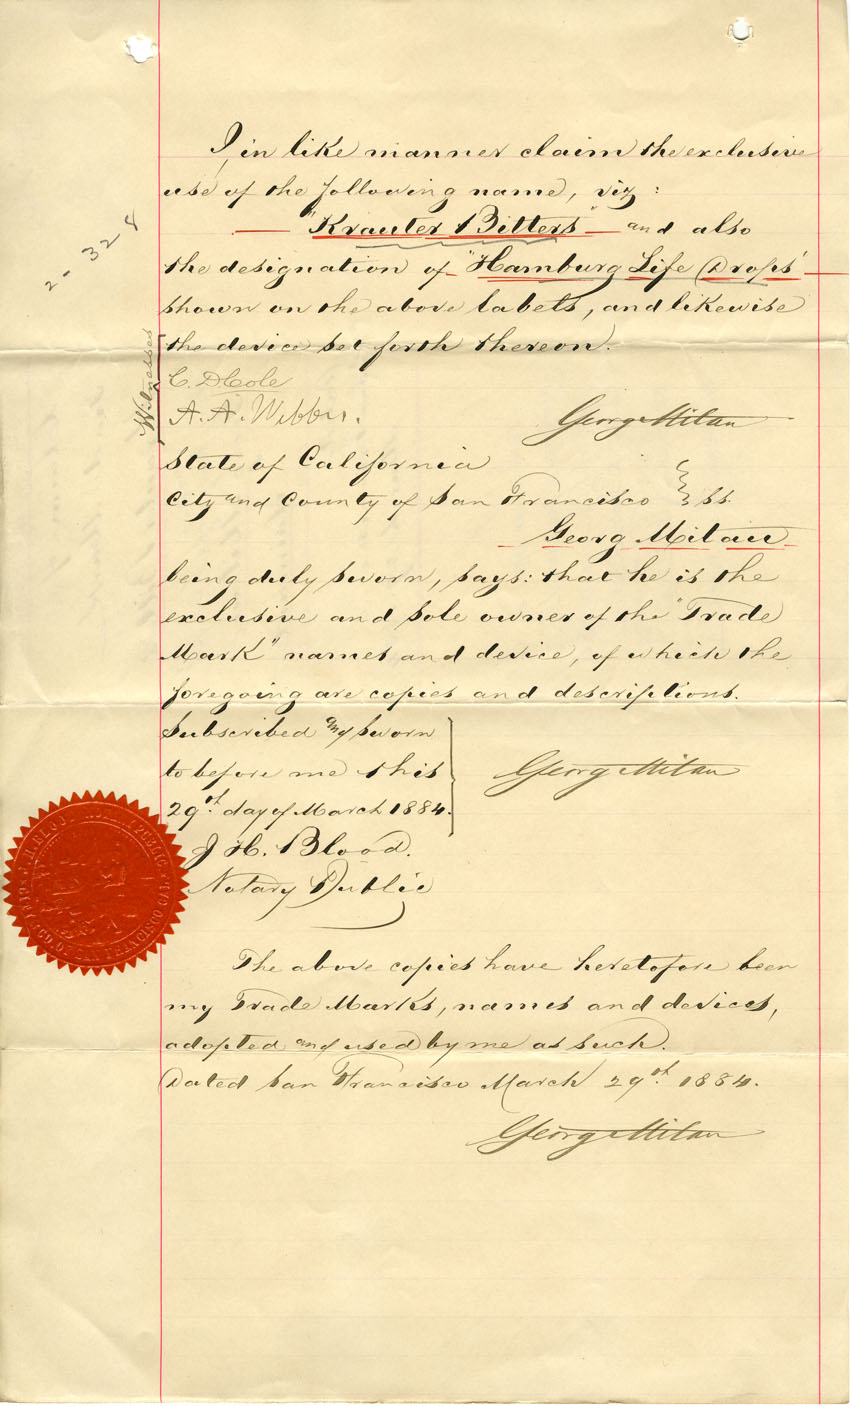 I, in like manner claim the exclusive
use of the following name, viz:
— "Krauter Bitters" — and also
the designation of — "Hamburg Life Drops" —
shown on the above labels, and likewise
the device set forth thereon.
2 - 328
Witnesses
C. D. Cole
A. A. Webber.
Georg Milau
State of California
City and County of San Francisco } ss.
— Georg Milau —
being duly sworn, says: that he is the
exclusive and sole owner of the "Trade
Mark" names and device, of which the
foregoing are copies and descriptions.
Subscribed and sworn
to before me this
29th day of March 1884.
Georg Milau
J. H. Blood.
Notary Public
The above copies have heretofore been
my Trade Marks, names and devices,
adopted and used by me as such.
Dated San Francisco March 29th 1884.
Georg Milau